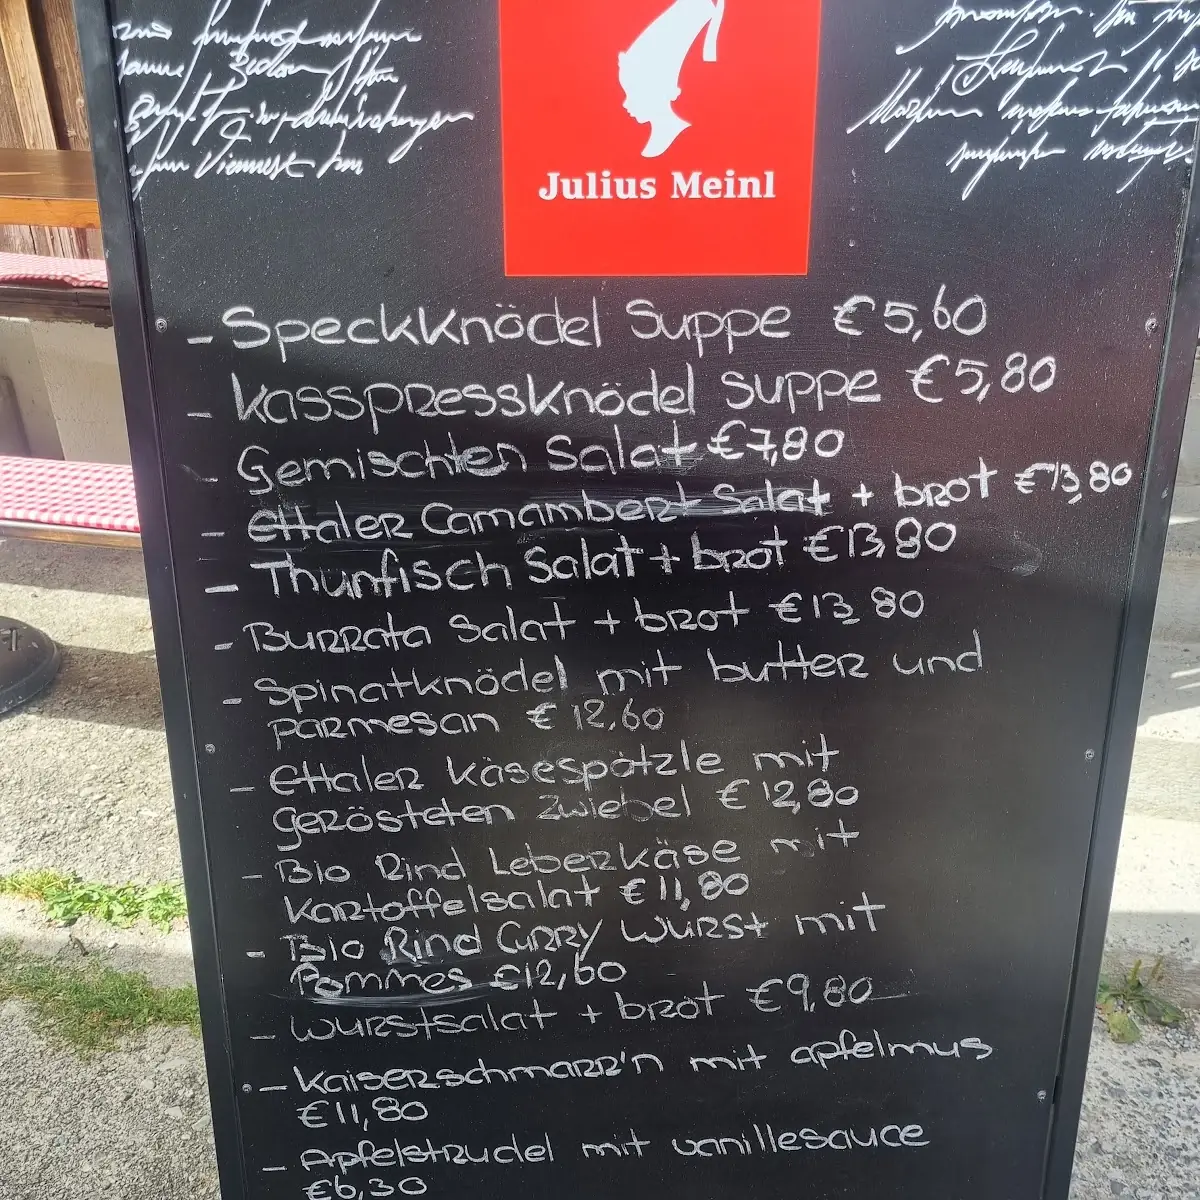 Julius Meinl
- Speckknödel Suppe €5,60
- Kasspressknödel suppe €5,80
- Gemischten Salat €7,80
- Ettaler Camambert Salat + brot €13,80
- Thunfisch Salat + brot €13,80
- Burrata Salat + brot €13,80
- Spinatknödel mit butter und
parmesan €12,60
- Ettaler Käsespätzle mit
gerösteten zwiebel €12,80
- Bio Rind Leberkäse mit
Kartoffelsalat €11,80
- Bio Rind Curry Wurst mit
Pommes €12,60
- Wurstsalat + brot €9,80
- Kaiserschmarr'n mit apfelmus
€11,80
- Apfelstrudel mit vanillesauce
€6,30